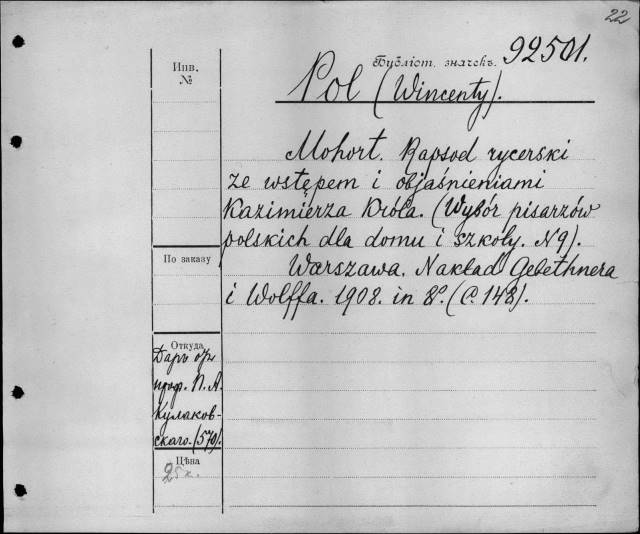 22
Библіот. значекъ. 92501.
Инв.
№
Pol (Wincenty).
Mohort. Rapsod rycerski
ze wstępem i objaśnieniami
Kazimierza Króla. (Wybór pisarzów
polskich dla domu i szkoły. N9).
По заказу
Warszawa. Nakład Gebethnera
i Wolffa. 1908. in 8º. (С. 148).
Откуда
Даръ орд.
проф. П. А.
Кулаков-
скаго. (570).
Цѣна
25к.